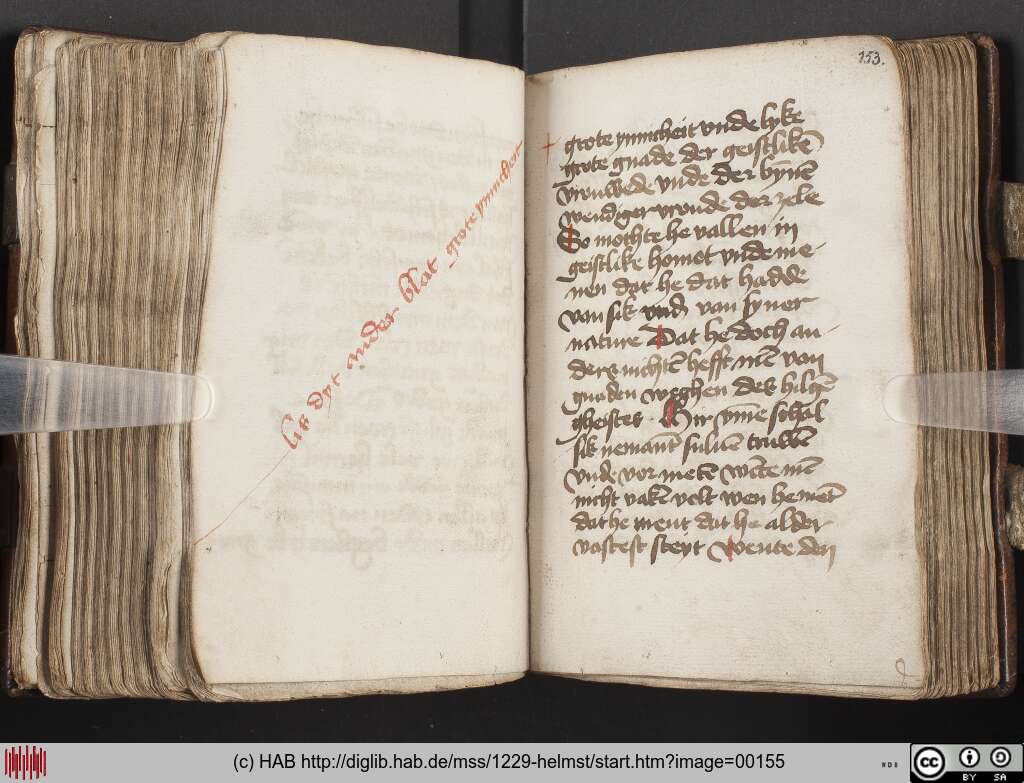 lis dyt ander blat grote ynnicheit
153.
grote ynnicheit vnde lyke
grote gnade der geistlikē
vrouwede vnde der bynē
wendiger vroude der zele
So mochte he vallen in
geistlike homot vnde me-
nen dat he dat hadde
van sik vnd van syner
nature Dat he doch an-
ders nichten hefft mē von
gnaden weghen des hilgē
gheistes · Hir vme schal
sik nemant suluē truwē
vnde vor meten wēte mē
nicht vakē velt wen he menē
dat he ment dat he alder
vastest steyt Wente den
(c) HAB http://diglib.hab.de/mss/1229-helmst/start.htm?image=00155
WDB
CC
BY SA